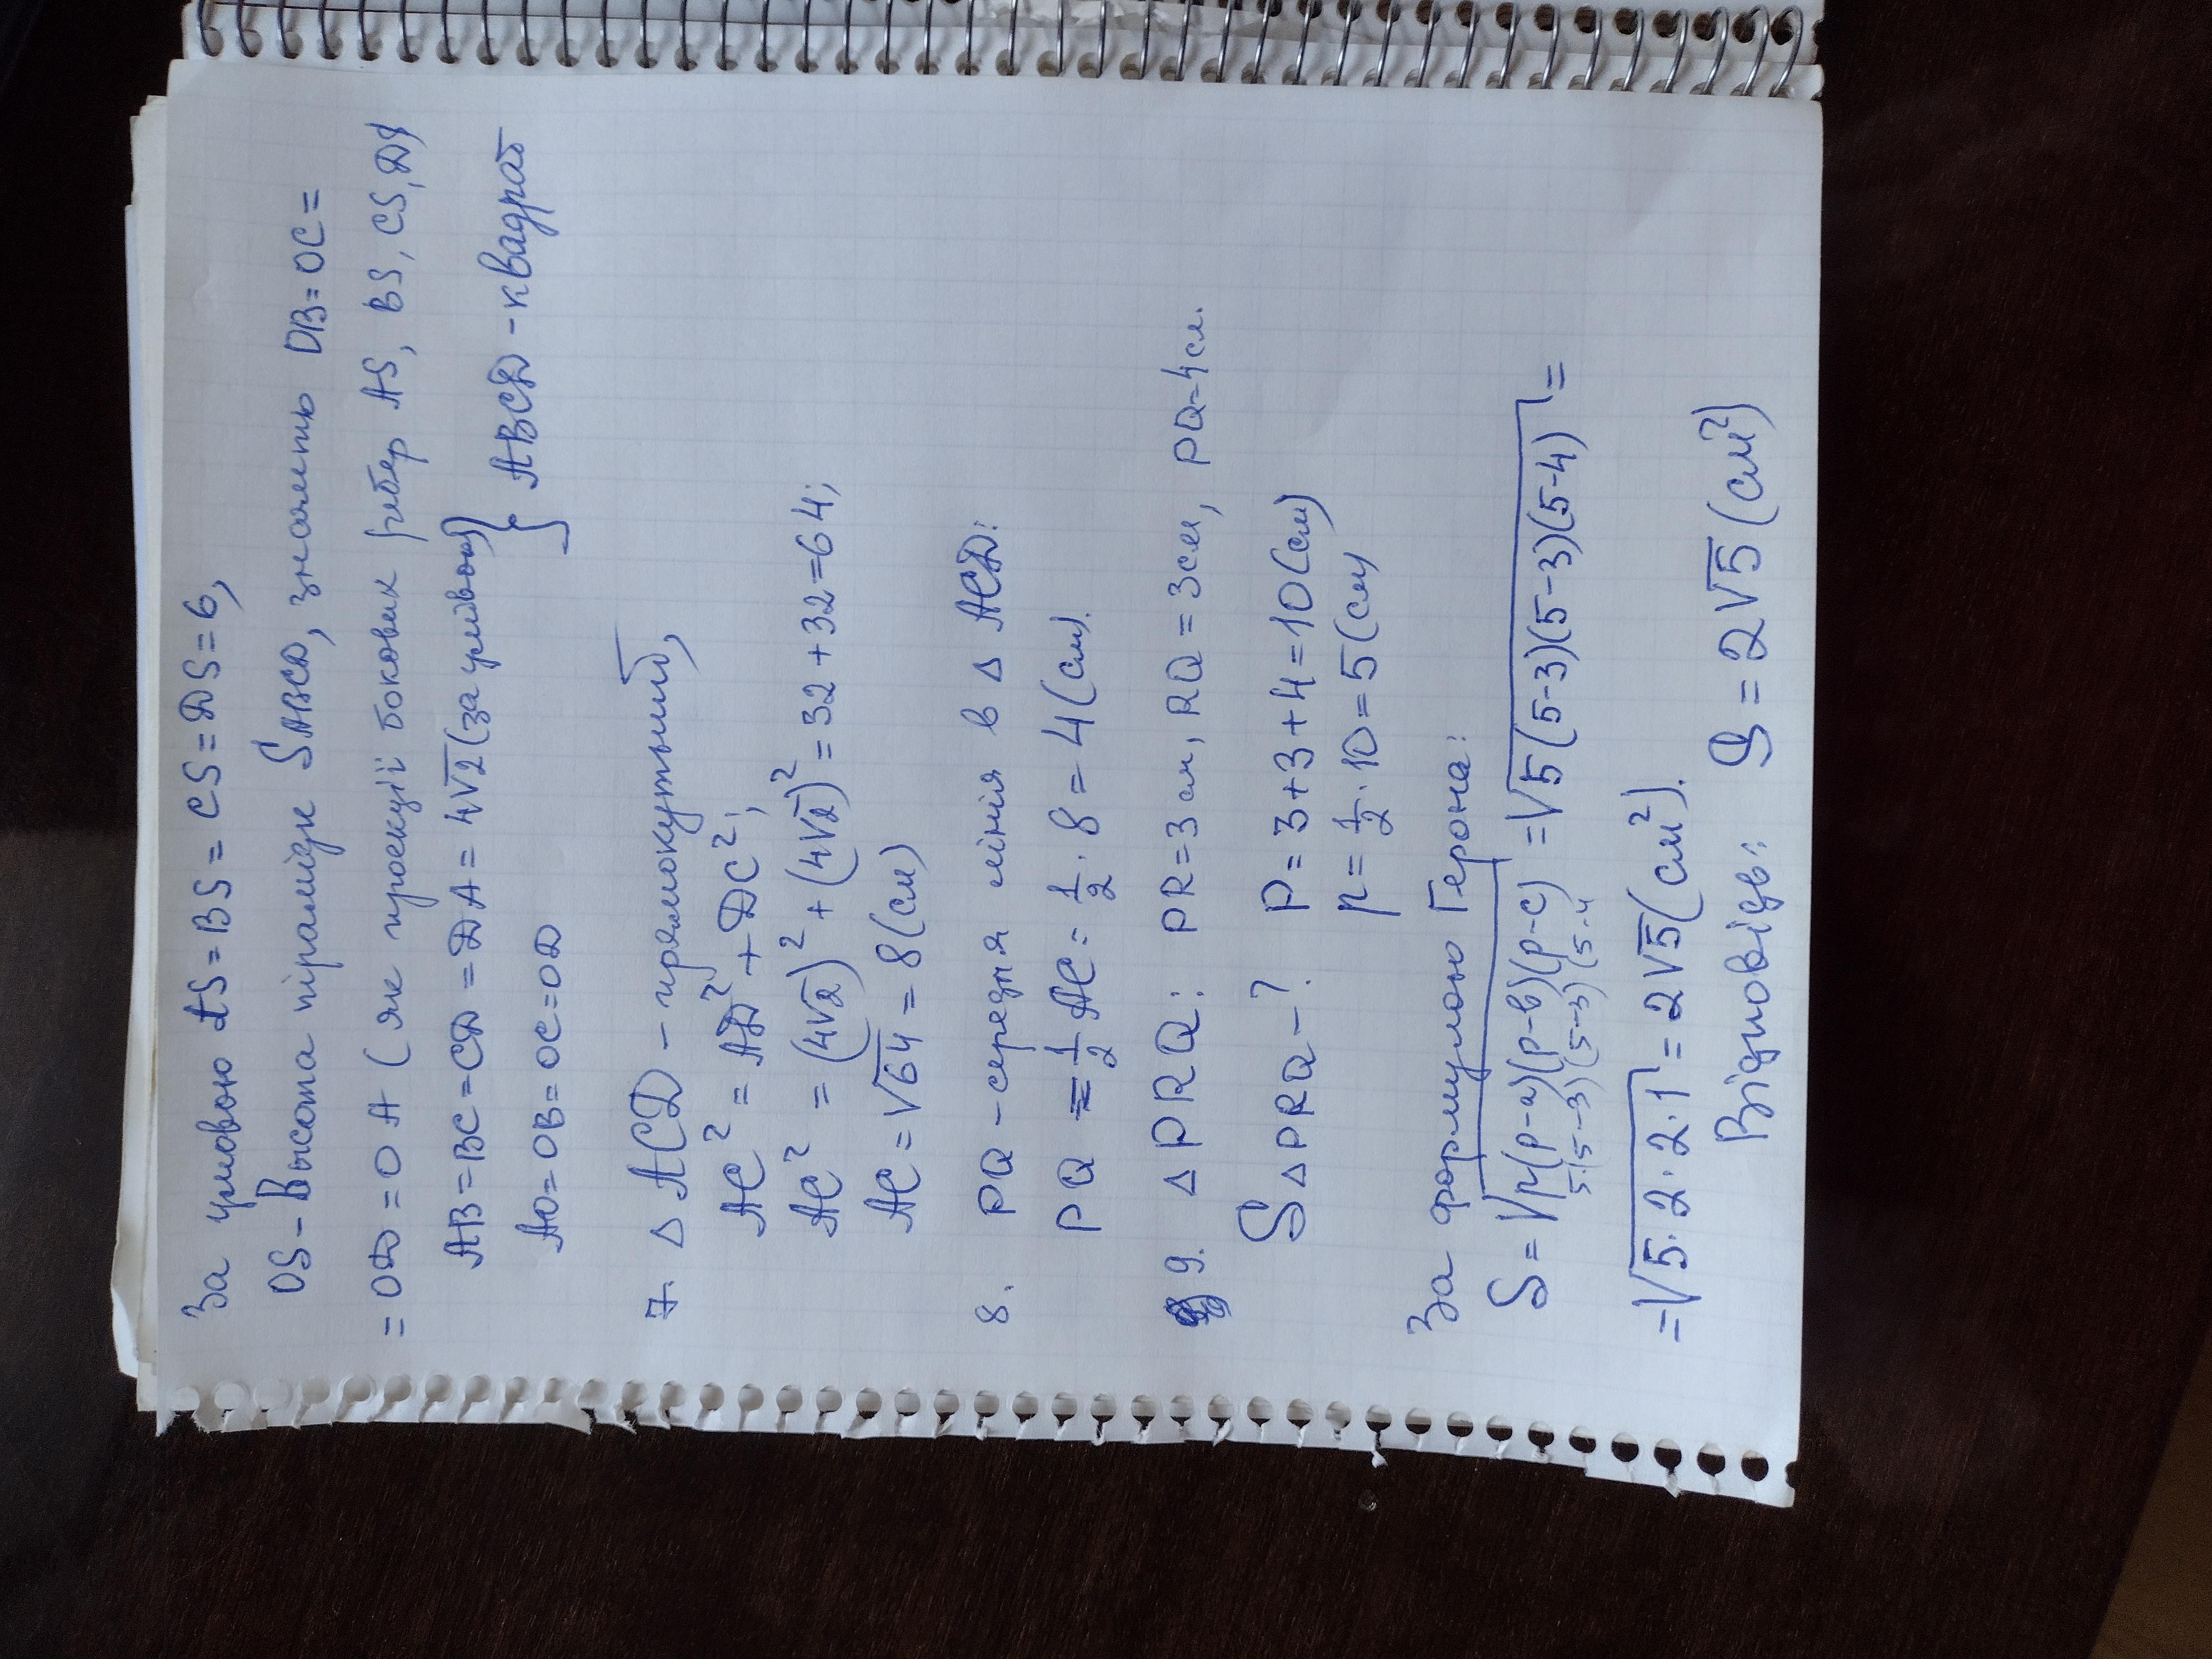 За умовою AS = BS = CS = DS = 6,
OS - Высота піраміди SABCD, значить OB = OC =
= OD = OA (як проекції бокових ребер AS, BS, CS, DS)
AB = BC = CD = DA = 4√2 (за умовою)
AO = OB = OC = OD } ABCD - квадрат
7. △ ACD - прямокутний,
AC² = AD² + DC²;
AC² = (4√2)² + (4√2)² = 32 + 32 = 64;
AC = √64 = 8 (см)
8. PQ - середня лінія в △ ACD:
PQ = 1/2 AC = 1/2 · 8 = 4 (см).
9. △ PRQ: PR = 3 см, RQ = 3 см, PQ = 4 см.
S △ PRQ - ? P = 3 + 3 + 4 = 10 (см)
p = 1/2 · 10 = 5 (см)
За формулою Герона:
S = √p(p-a)(p-b)(p-c) = √5(5-3)(5-3)(5-4) =
5·(5-3)(5-3)(5-4
= √5·2·2·1 = 2√5 (см²).
Відповідь: S = 2√5 (см²)